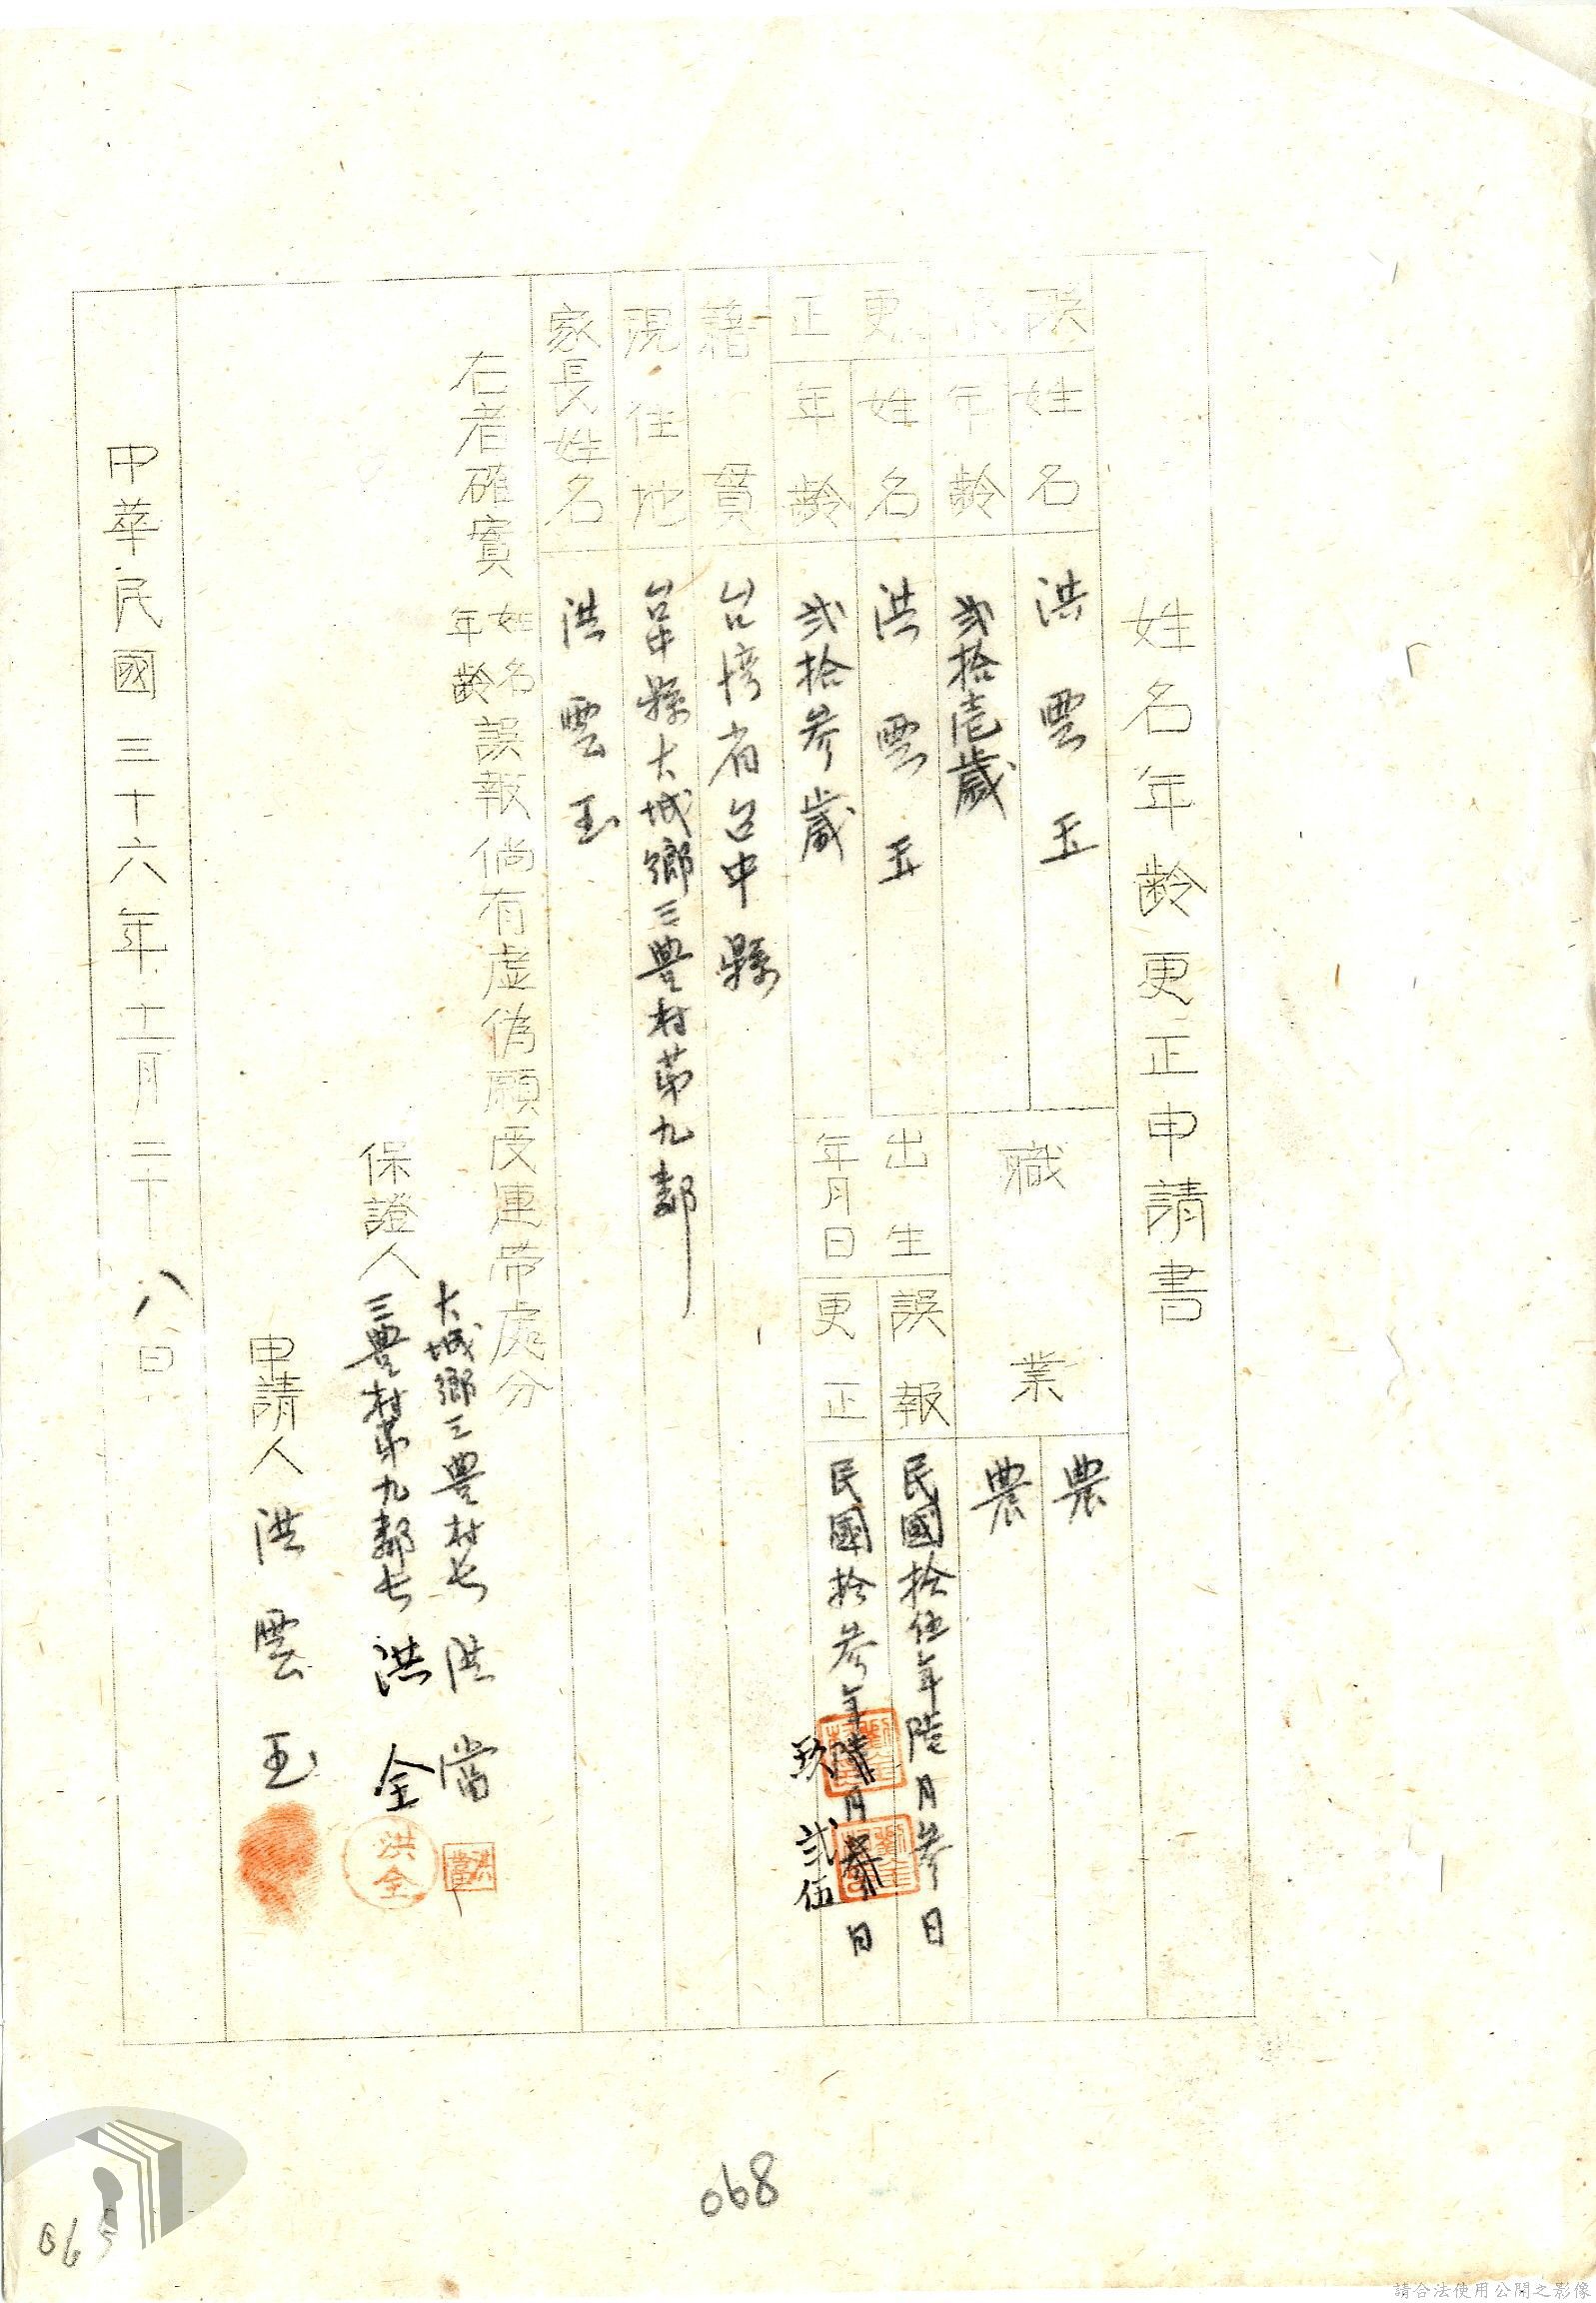 姓名年齡更正申請書
誤報
姓名
洪雲玉
年齡
貳拾壱歲
職業
農
農
更正
姓名
洪雲玉
年齡
貳拾參歲
出生
年月日
誤報
民國拾伍年陸月參日
更正
民國拾參年陸月參日
玖
貳伍
籍貫
台湾省台中縣
現住地
台中縣大城鄉三豊村第九鄰
家長姓名
洪雲玉
右者確實
姓名
年齡
誤報倘有虛偽願受連帶處分
大城鄉三豊村長 洪當
保證人
三豊村第九鄰長 洪全
洪全
申請人 洪雲玉
中華民國三十六年十二月二十八日
068
請合法使用公開之影像